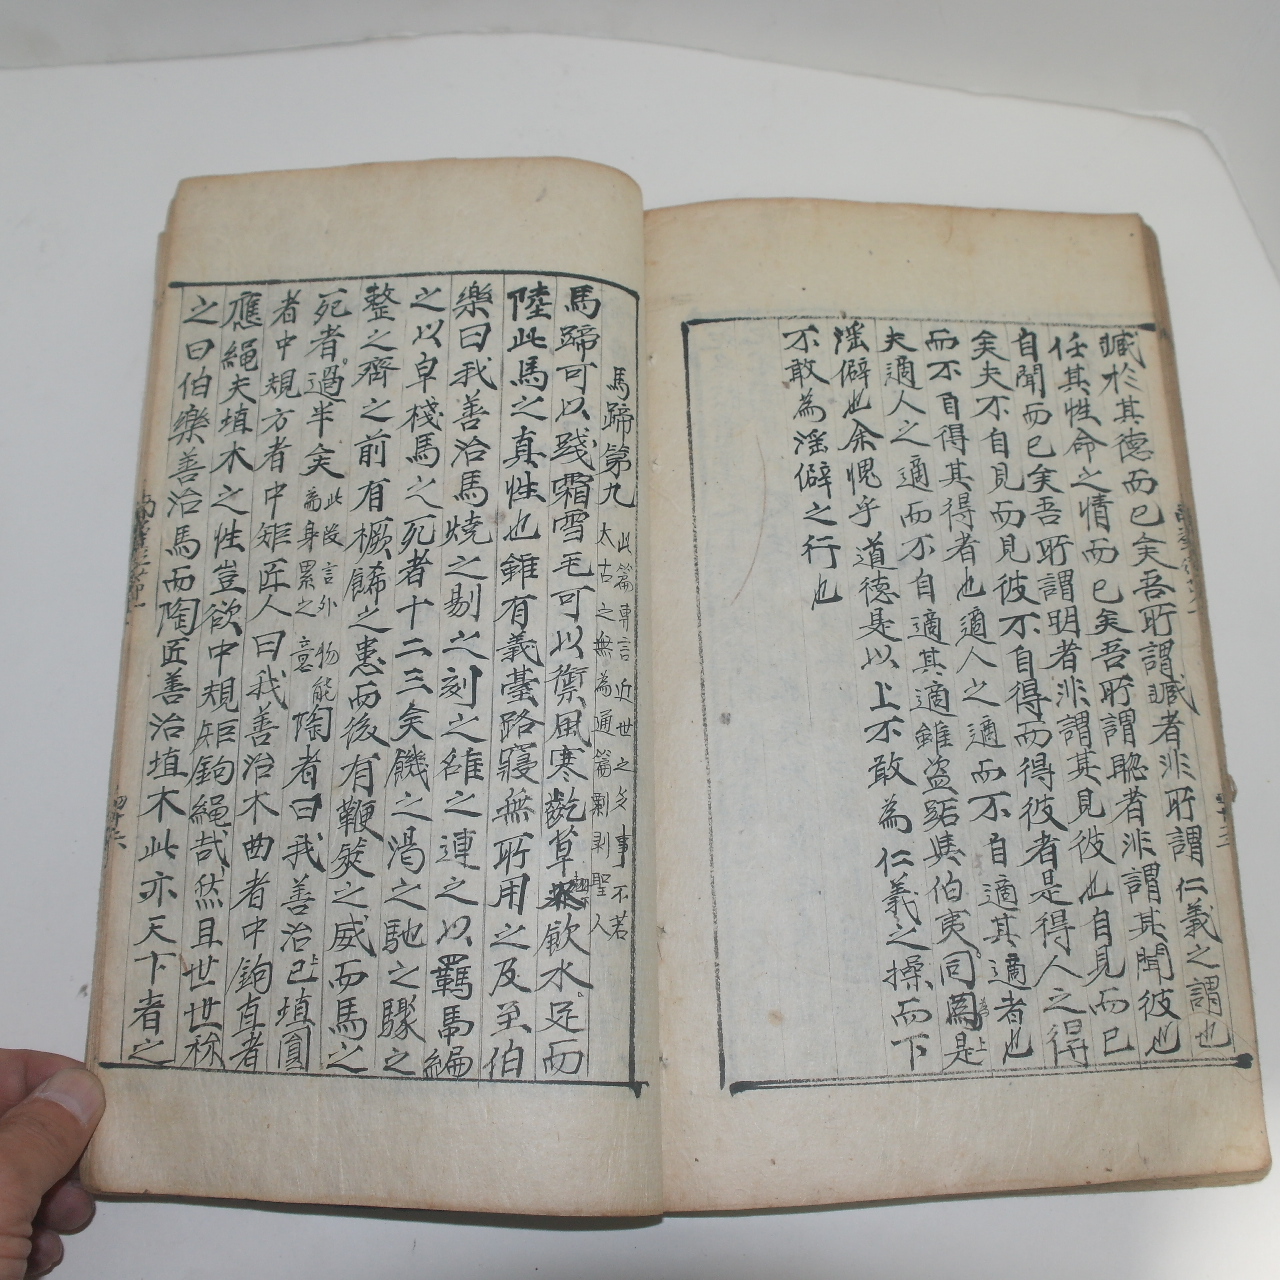 臧於其德而已矣吾所謂臧者非所謂仁義之謂也
任其性命之情而已矣吾所謂聦者非謂其聞彼也
自聞而已矣吾所謂明者非謂其見彼也自見而已
矣夫不自見而見彼不自得而得彼者是得人之得
而不自得其得者也適人之適而不自適其適者也
夫適人之適而不自適其適雖盜跖與伯夷同為是
淫僻也余愧乎道德是以上不敢為仁義之操而下
不敢為淫僻之行也
馬蹄第九
此篇專言近世之多事不若
太古之無為通篇剽剥聖人
馬蹄可以踐霜雪毛可以禦風寒齕草飲水足而
陸此馬之真性也雖有義臺路寢無所用之及至伯
樂曰我善治馬燒之剔之刻之雒之連之以羈馽編
之以皁棧馬之死者十二三矣饑之渴之馳之驟之
整之齊之前有橛飾之患而後有鞭筴之威而馬之
死者過半矣
此段言外物能
為身累之意
陶者曰我善治埴圓
者中規方者中矩匠人曰我善治木曲者中鉤直者
應繩夫埴木之性豈欲中規矩鉤繩哉然且世世稱
之曰伯樂善治馬而陶匠善治埴木此亦天下者之